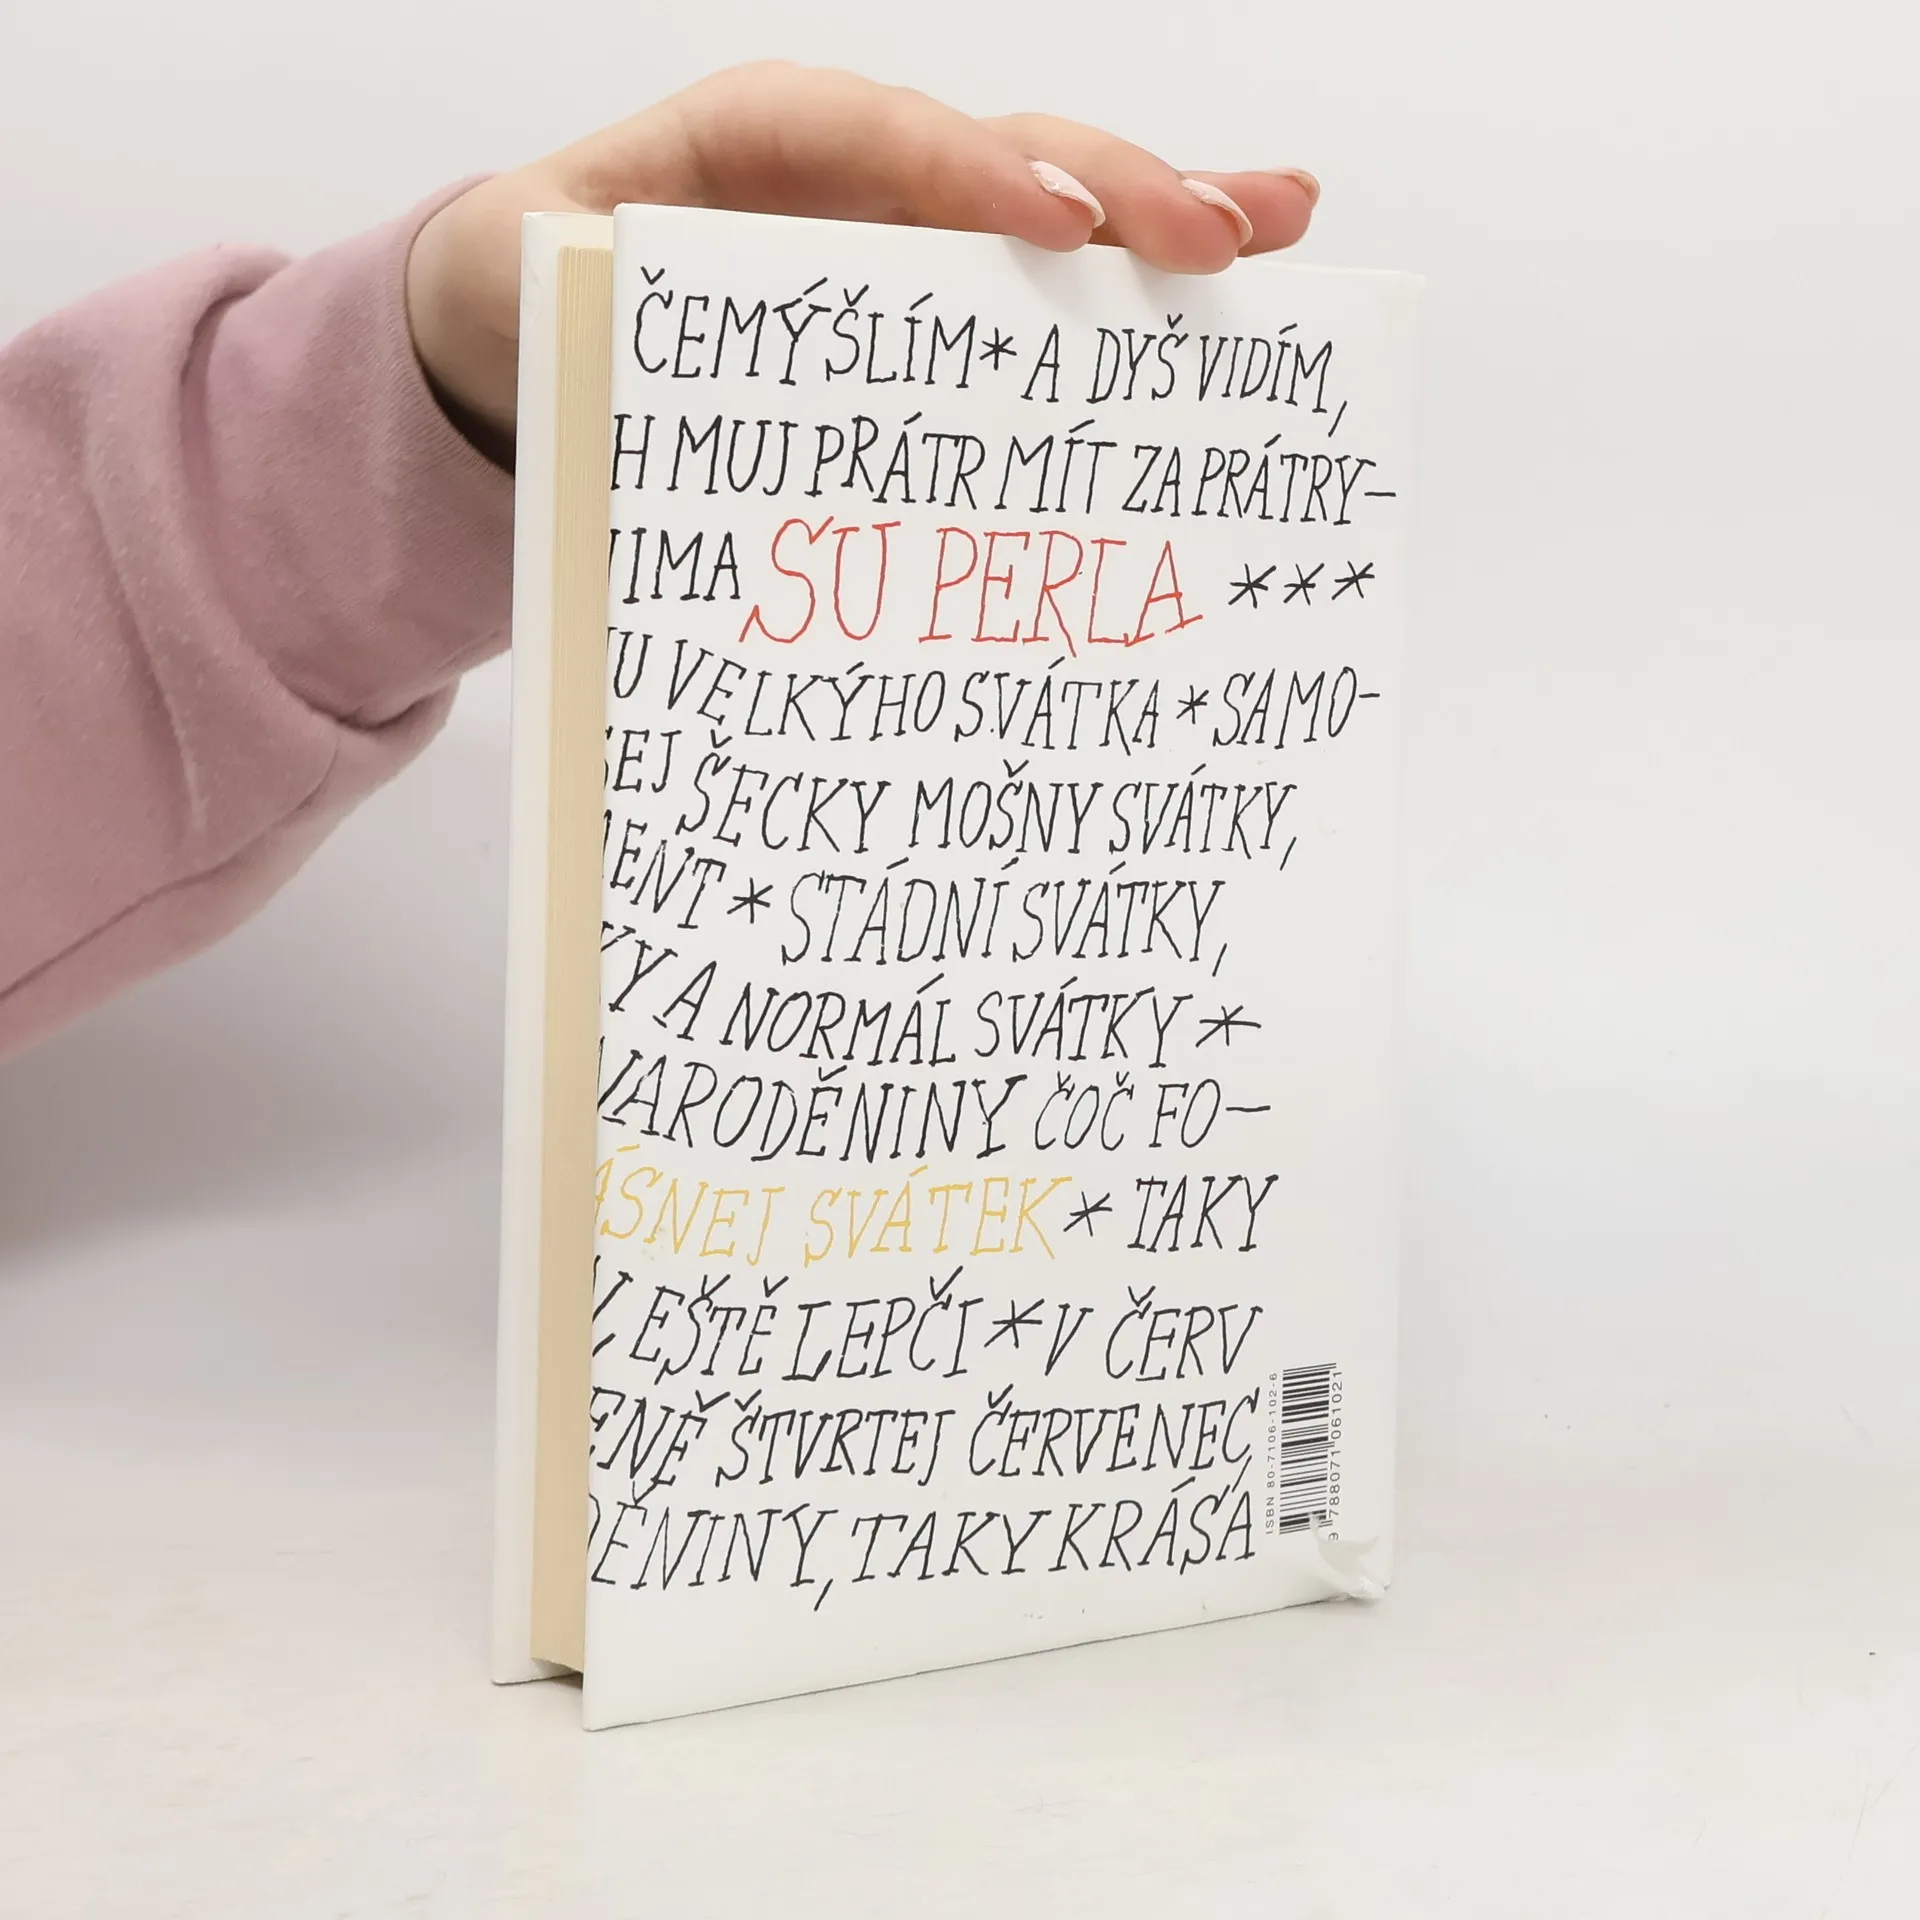 ČEMÝŠLÍM * A DYŠ VIDÍM,
H MUJ PRÁTR MÍT ZA PRÁTRY-
IMA SU PERLA ***
U VELKÝHO SVÁTKA * SAMO-
EJ ŠECKY MOŠNY SVÁTKY,
ENT * STÁDNÍ SVÁTKY,
Y A NORMÁL SVÁTKY *
NARODĚNINY ČOČ FO-
ÁSNEJ SVÁTEK * TAKY
EŠTĚ LEPČI * V ČERV
ENĚ ŠTVRTEJ ČERVENEC,
DĚNINY, TAKY KRÁSÁ
ISBN 80-7106-102-6
9 788071 061021